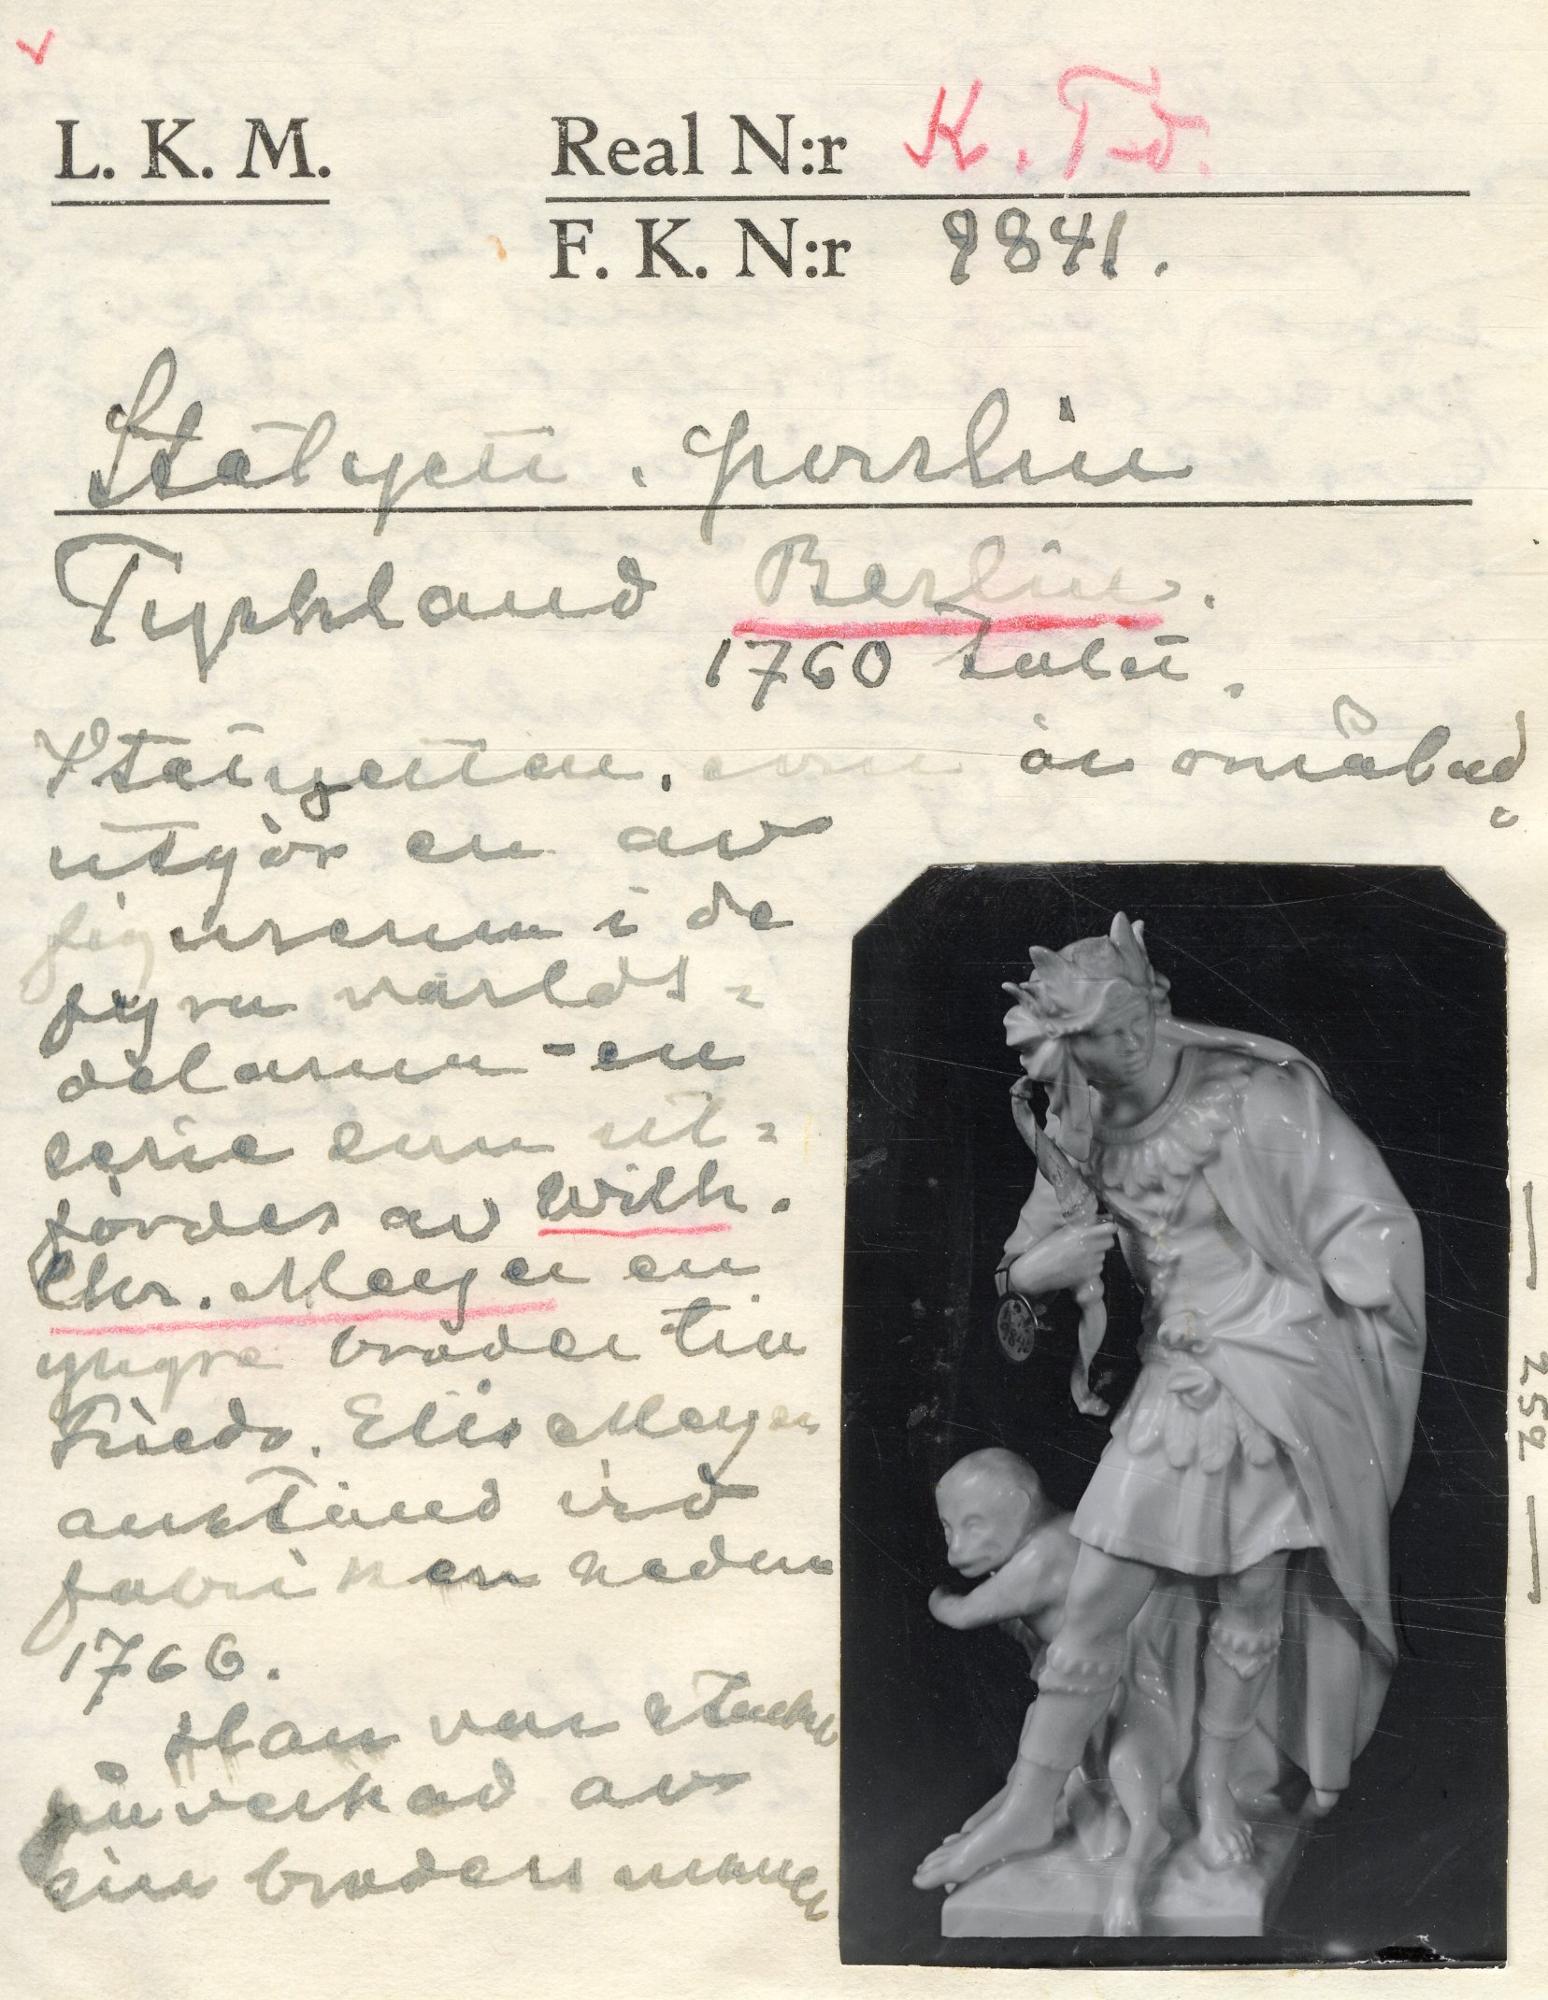 L. K. M. Real N:r K. T-d.
F. K. N:r 9841.
Statyett. porslin
Tyskland Berlin.
1760 talet.
Statyetten, som är omålad
utgör en av
figurerna i de
fyra världs-
delarna - en
serie som ut-
fördes av Wilh.
Chr. Meyer en
yngre broder till
Friedr. Elis Meyer
anställd vid
fabriken sedan
1766.
Han var starkt
påverkad av
sin broders
252